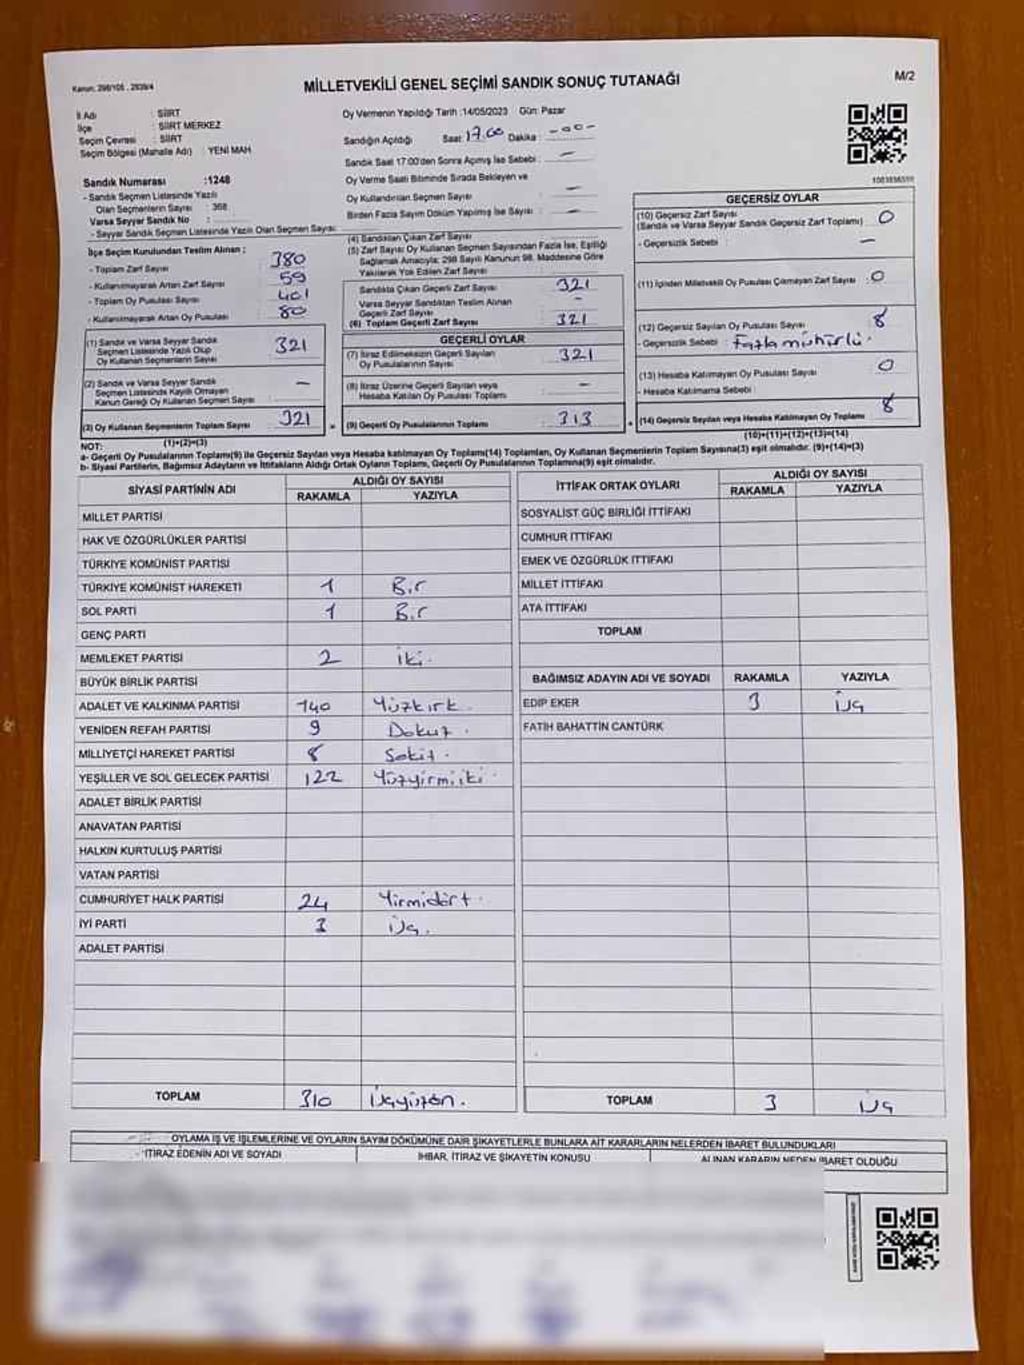 Kanun: 298/105 , 2839/4
MİLLETVEKİLİ GENEL SEÇİMİ SANDIK SONUÇ TUTANAĞI
M/2
İl Adı : SİİRT
İlçe : SİİRT MERKEZ
Seçim Çevresi : SİİRT
Seçim Bölgesi (Mahalle Adı) : YENİ MAH
Oy Vermenin Yapıldığı Tarih :14/05/2023 Gün: Pazar
Sandığın Açıldığı Saat 17.00 Dakika : -00-
Sandık Saat 17:00'den Sonra Açılmış İse Sebebi : —
Oy Verme Saati Bitiminde Sırada Bekleyen ve
Oy Kullandırılan Seçmen Sayısı : —
Birden Fazla Sayım Döküm Yapılmış İse Sayısı : —
Sandık Numarası :1248
- Sandık Seçmen Listesinde Yazılı
Olan Seçmenlerin Sayısı : 368
Varsa Seyyar Sandık No :
- Seyyar Sandık Seçmen Listesinde Yazılı Olan Seçmen Sayısı:
İlçe Seçim Kurulundan Teslim Alınan ;
- Toplam Zarf Sayısı : 380
- Kullanılmayarak Artan Zarf Sayısı : 59
- Toplam Oy Pusulası Sayısı : 401
- Kullanılmayarak Artan Oy Pusulası : 80
(1) Sandık ve Varsa Seyyar Sandık
Seçmen Listesinde Yazılı Olup
Oy Kullanan Seçmenlerin Sayısı : 321
(2) Sandık ve Varsa Seyyar Sandık
Seçmen Listesinde Kayıtlı Olmayan
Kanun Gereği Oy Kullanan Seçmen Sayısı : —
(3) Oy Kullanan Seçmenlerin Toplam Sayısı : 321
(1)+(2)=(3)
(4) Sandıktan Çıkan Zarf Sayısı :
(5) Zarf Sayısı Oy Kullanan Seçmen Sayısından Fazla İse, Eşitliği
Sağlamak Amacıyla; 298 Sayılı Kanunun 98. Maddesine Göre
Yakılarak Yok Edilen Zarf Sayısı :
Sandıkta Çıkan Geçerli Zarf Sayısı : 321
Varsa Seyyar Sandıktan Teslim Alınan
Geçerli Zarf Sayısı : -
(6) Toplam Geçerli Zarf Sayısı : 321
GEÇERLİ OYLAR
(7) İtiraz Edilmeksizin Geçerli Sayılan
Oy Pusulalarının Sayısı : 321
(8) İtiraz Üzerine Geçerli Sayılan veya
Hesaba Katılan Oy Pusulası Toplamı : —
(9) Geçerli Oy Pusulalarının Toplamı : 313
GEÇERSİZ OYLAR
(10) Geçersiz Zarf Sayısı
(Sandık ve Varsa Seyyar Sandık Geçersiz Zarf Toplamı) : 0
- Geçersizlik Sebebi : —
(11) İçinden Milletvekili Oy Pusulası Çıkmayan Zarf Sayısı : 0
(12) Geçersiz Sayılan Oy Pusulası Sayısı : 8
- Geçersizlik Sebebi : Fazla mühürlü.
(13) Hesaba Katılmayan Oy Pusulası Sayısı : 0
- Hesaba Katılmama Sebebi :
(14) Geçersiz Sayılan veya Hesaba Katılmayan Oy Toplamı : 8
(10)+(11)+(12)+(13)=(14)
NOT:
a- Geçerli Oy Pusulalarının Toplamı(9) ile Geçersiz Sayılan veya Hesaba katılmayan Oy Toplamı(14) Toplamları, Oy Kullanan Seçmenlerin Toplam Sayısına(3) eşit olmalıdır. (9)+(14)=(3)
b- Siyasi Partilerin, Bağımsız Adayların ve İttifakların Aldığı Ortak Oyların Toplamı, Geçerli Oy Pusulalarının Toplamına(9) eşit olmalıdır.
SİYASİ PARTİNİN ADI
ALDIĞI OY SAYISI
RAKAMLA YAZIYLA
MİLLET PARTİSİ
HAK VE ÖZGÜRLÜKLER PARTİSİ
TÜRKİYE KOMÜNİST PARTİSİ
TÜRKİYE KOMÜNİST HAREKETİ 1 Bir
SOL PARTİ 1 Bir
GENÇ PARTİ
MEMLEKET PARTİSİ 2 iki.
BÜYÜK BİRLİK PARTİSİ
ADALET VE KALKINMA PARTİSİ 140 Yüzkırk.
YENİDEN REFAH PARTİSİ 9 Dokuz.
MİLLİYETÇİ HAREKET PARTİSİ 8 Sekiz.
YEŞİLLER VE SOL GELECEK PARTİSİ 122 Yüzyirmiiki.
ADALET BİRLİK PARTİSİ
ANAVATAN PARTİSİ
HALKIN KURTULUŞ PARTİSİ
VATAN PARTİSİ
CUMHURİYET HALK PARTİSİ 24 Yirmidört.
İYİ PARTİ 3 üç.
ADALET PARTİSİ
TOPLAM 310 üçyüzon.
İTTİFAK ORTAK OYLARI
ALDIĞI OY SAYISI
RAKAMLA YAZIYLA
SOSYALİST GÜÇ BİRLİĞİ İTTİFAKI
CUMHUR İTTİFAKI
EMEK VE ÖZGÜRLÜK İTTİFAKI
MİLLET İTTİFAKI
ATA İTTİFAKI
TOPLAM
BAĞIMSIZ ADAYIN ADI VE SOYADI RAKAMLA YAZIYLA
EDİP EKER 3 üç
FATİH BAHATTİN CANTÜRK
TOPLAM 3 üç
OYLAMA İŞ VE İŞLEMLERİNE VE OYLARIN SAYIM DÖKÜMÜNE DAİR ŞİKAYETLERLE BUNLARA AİT KARARLARIN NELERDEN İBARET BULUNDUKLARI
İTİRAZ EDENİN ADI VE SOYADI
İHBAR, İTİRAZ VE ŞİKAYETİN KONUSU
ALINAN KARARIN NEDEN İBARET OLDUĞU